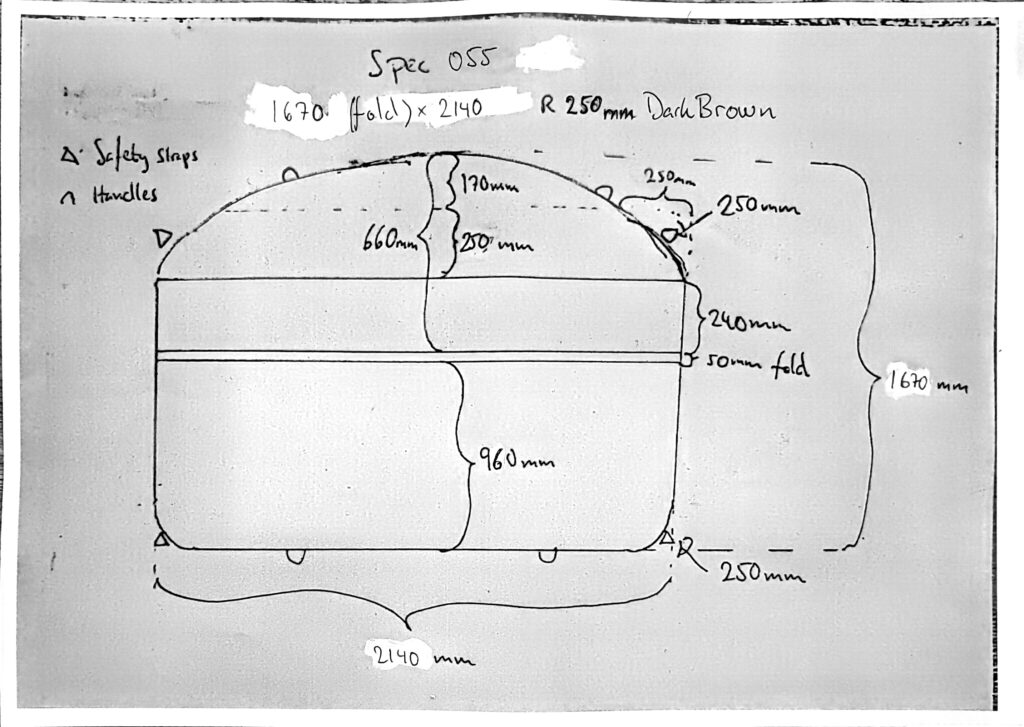 Spec 055
1670 (fold) x 2140 R 250mm Dark Brown
Safety Straps
Handles
170mm
250mm
250mm
660mm
250mm
240mm
50mm fold
1670 mm
960mm
250mm
2140 mm